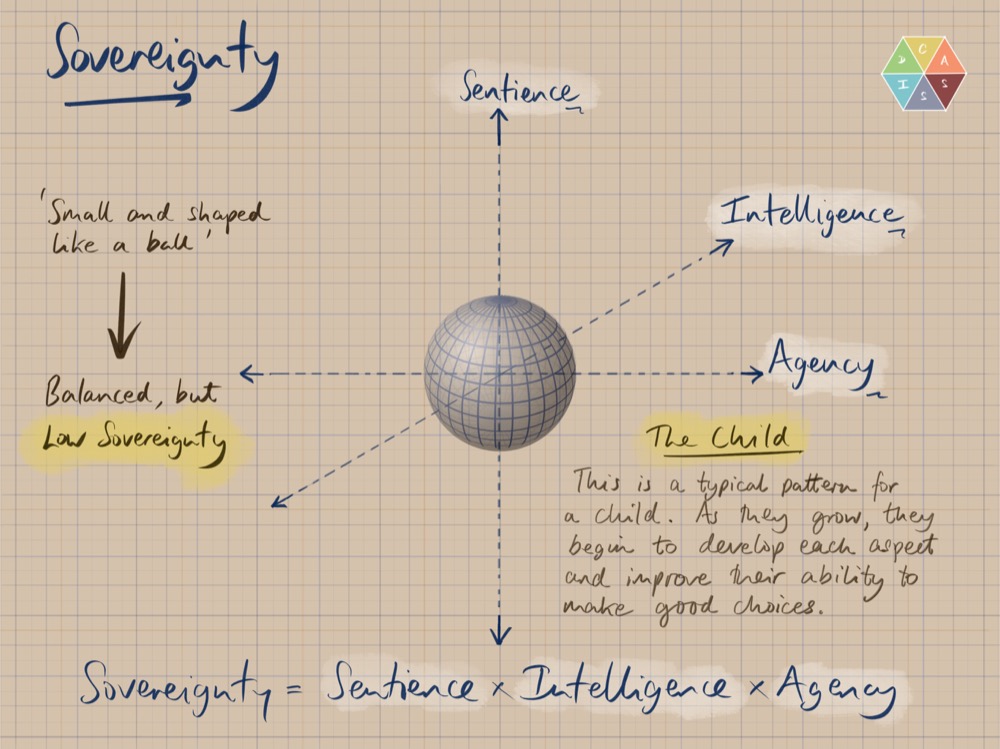 Sovereignty
D C A
I S S
Sentience
Intelligence
Agency
'Small and shaped
like a ball'
Balanced, but
Low Sovereignty
The Child
This is a typical pattern for
a child. As they grow, they
begin to develop each aspect
and improve their ability to
make good choices.
Sovereignty = Sentience x Intelligence x Agency